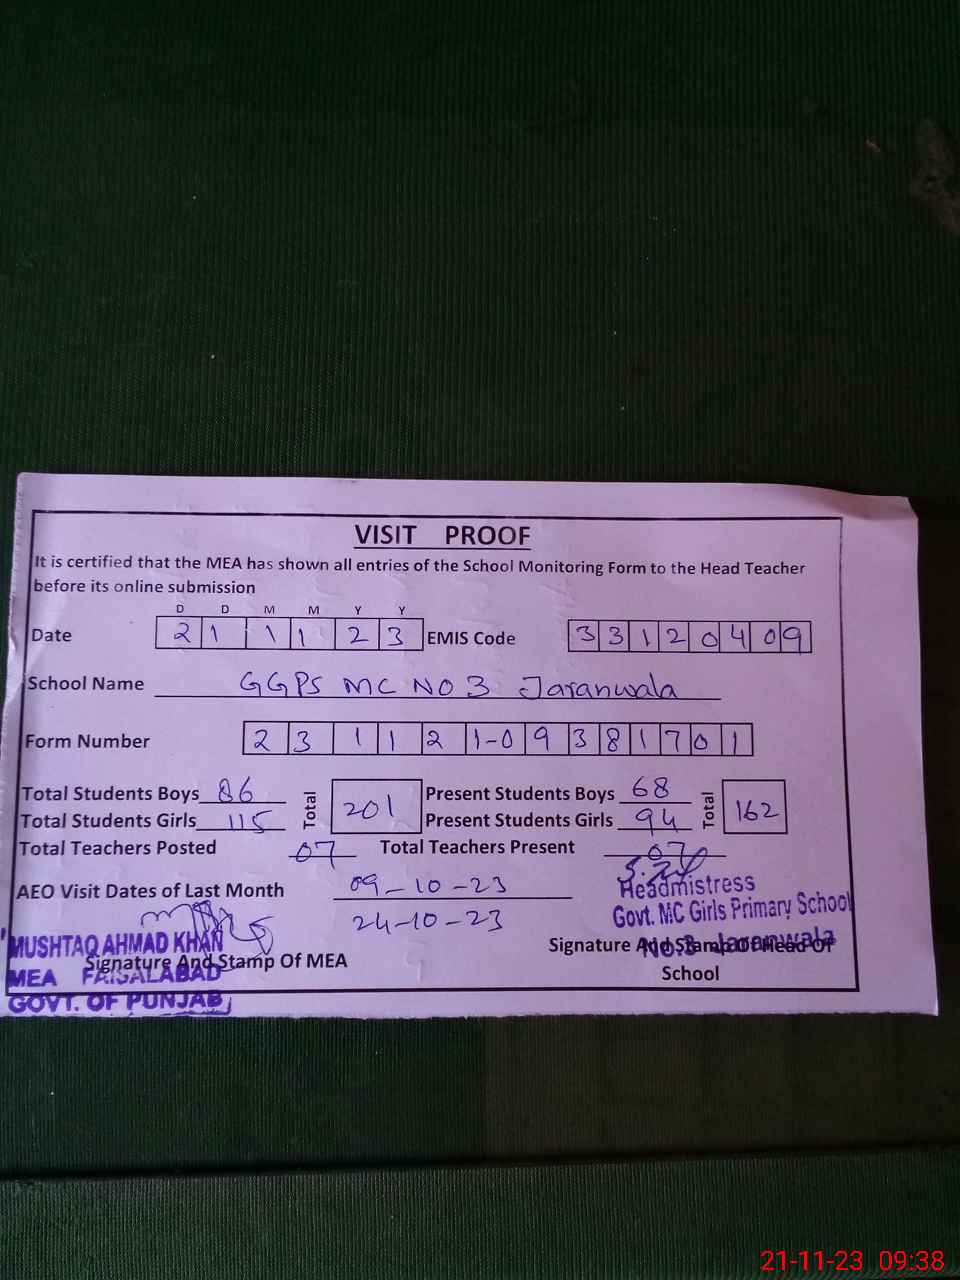 VISIT PROOF
It is certified that the MEA has shown all entries of the School Monitoring Form to the Head Teacher
before its online submission
D D M M Y Y
Date 21 11 23 EMIS Code 33120409
School Name GGPS MC NO 3 Jaranwala
Form Number 2311 21-09381701
Total Students Boys 86 Total 201 Present Students Boys 68 Total 162
Total Students Girls 115 Present Students Girls 94
Total Teachers Posted 07 Total Teachers Present 07
AEO Visit Dates of Last Month 09-10-23
24-10-23
Headmistress
Govt. MC Girls Primary School
No.3 Jaranwala
Signature And Stamp Of Head Of
School
MUSHTAQ AHMAD KHAN
Signature And Stamp Of MEA
MEA FAISALABAD
GOVT. OF PUNJAB
21-11-23 09:38